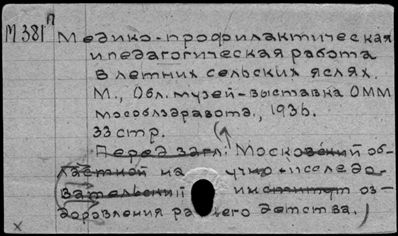 М381л
Медико-профилактическая
и педагогическая работа
в летних сельских яслях.
М., Обл. музей-выставка ОММ
Мособлздравота., 1936.
33 стр.
Перед загл.: Московский об-
ластной научно-исследо-
вательский институт оз-
доровления раннего детства.